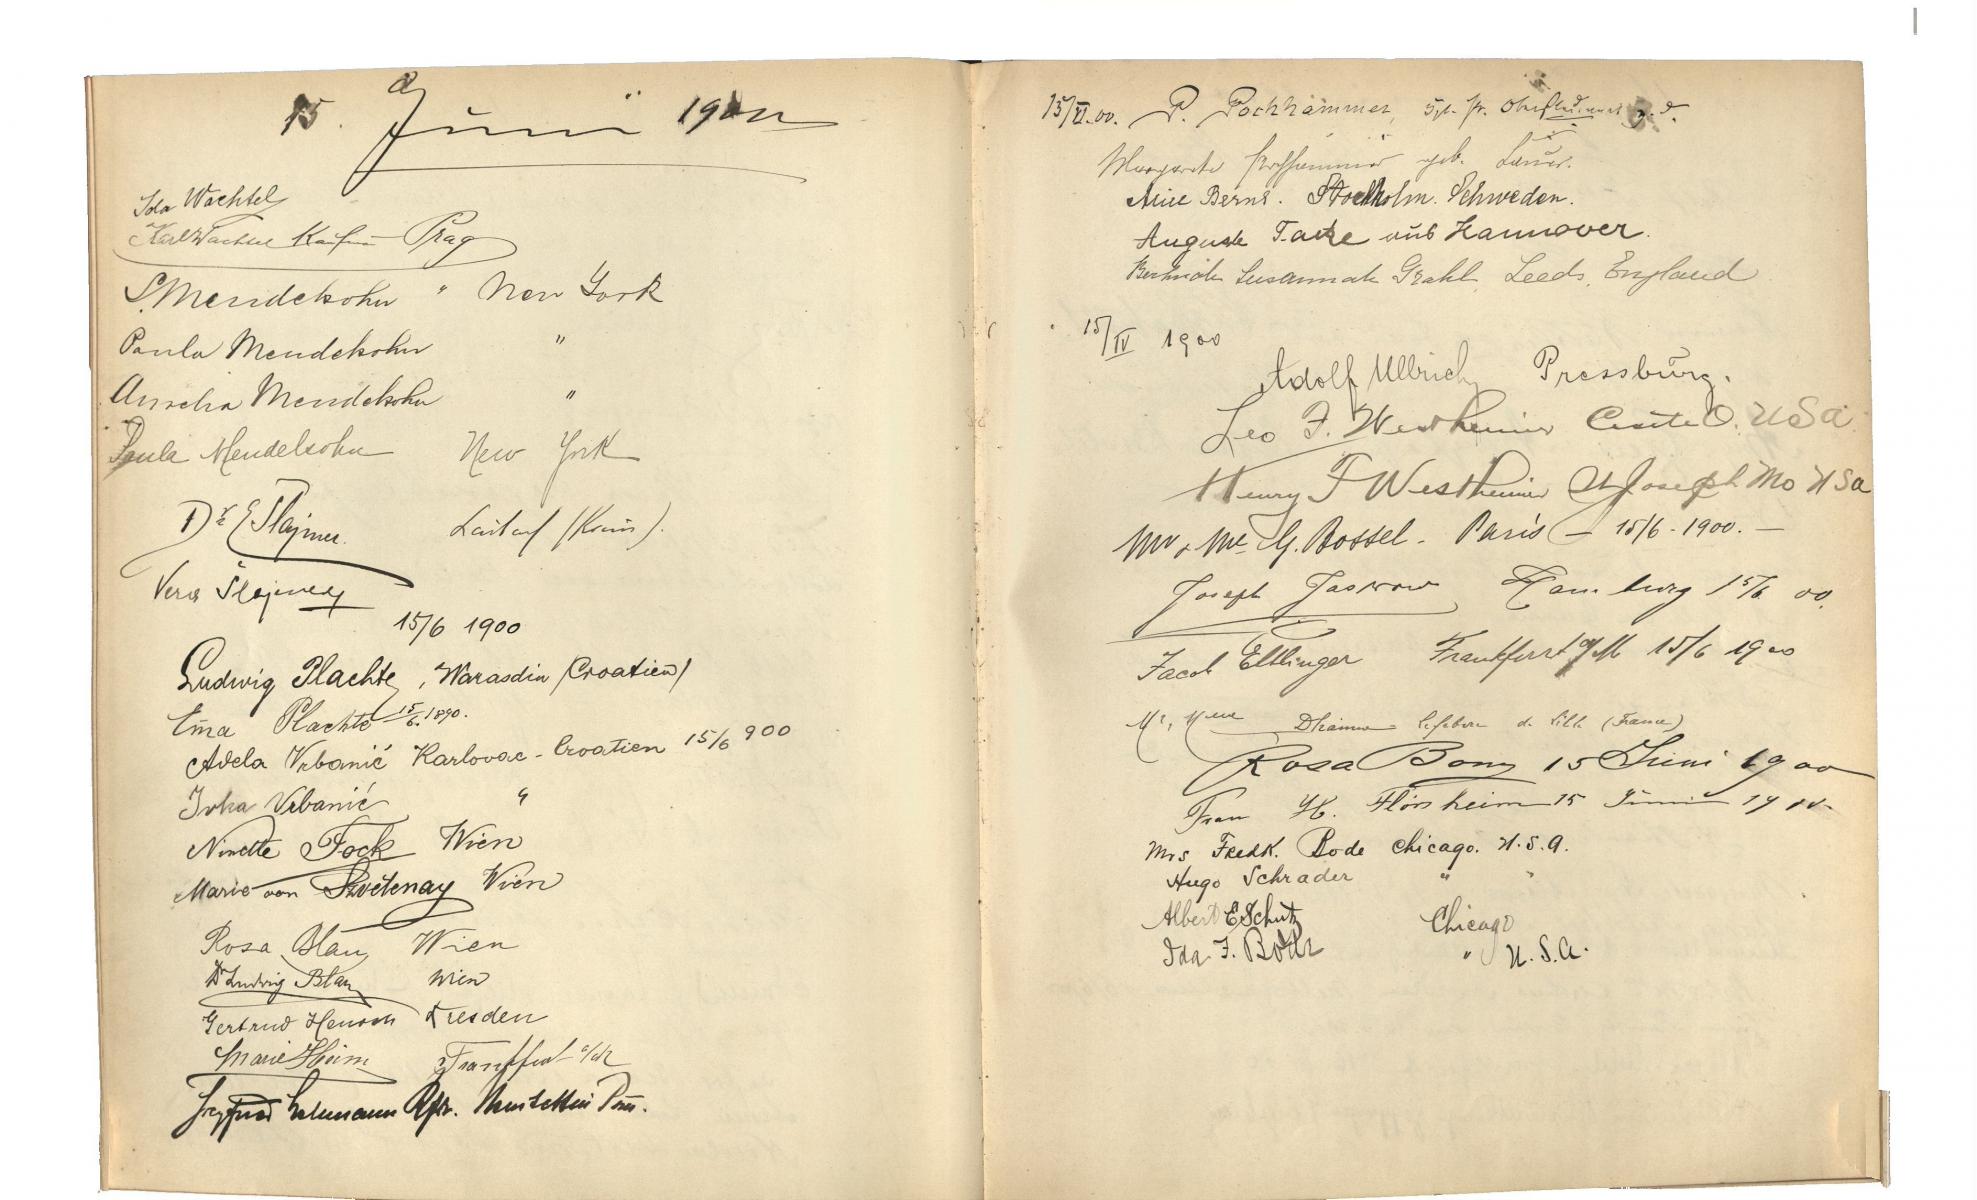 15. Juni 1900
Ida Wachtel
Karl Wachtel Prag
S. Mendelsohn " New York
Paula Mendelsohn "
Aurelia Mendelsohn "
Paula Mendelsohn New York
Dr E Šlajmer
Vera Šlajmer
15/6 1900
Ludwig Plachte, Warasdin (Croatien)
Ema Plachte 15/6. 1890.
Adela Vrbanić Karlovac - Croatien 15/6 900
Ivka Vrbanić "
Ninette Fock Wien
Marie von Wien
Rosa Blau Wien
Dr Ludwig Blau Wien
Gertrud Dresden
Marie Heim Frankfurt a/M
Lehmann Neustettin Pom.
15/VI.00. P. Pochhammer,
Margarete Pochhammer geb.
Alice Berns. Stockholm. Schweden.
Auguste Tacke aus Hannover.
Susannah Grahl, Leeds, England
15/IV 1900
Adolf Ullrich Pressburg.
Leo F. Westheimer O. USA
Henry F Westheimer St Joseph Mo USA
Mr & Me G. Bossel - Paris - 15/6 - 1900. -
Joseph Jastrow Hamburg 15/6 00.
Jacob Ettlinger Frankfurt a/M 15/6 1900
Mr, Mme Lefebvre de Lille (France)
Rosa Bony 15 Juni 1900
Frau H. Flörsheim 15 Juni 1900
Mrs Fredk. Bode Chicago. U.S.A.
Hugo Schrader " "
Albert E Schutz Chicago
Ida F. Bode " U.S.A.